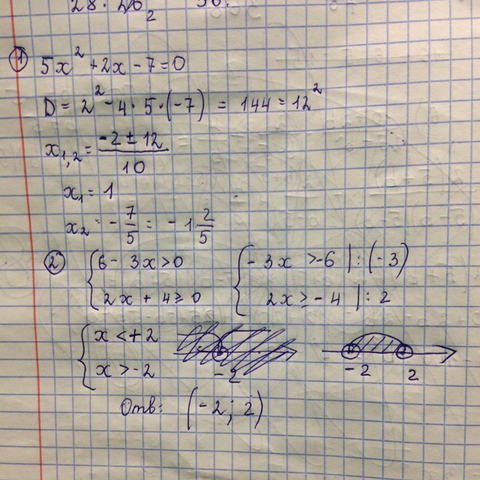 ① 5x² + 2x - 7 = 0
D = 2² - 4 · 5 · (-7) = 144 = 12²
x₁,₂ = (-2 ± 12) / 10
x₁ = 1
x₂ = - 7/5 = - 1 2/5
② { 6 - 3x > 0 { - 3x > -6 | : (-3)
2x + 4 ≥ 0 2x ≥ - 4 | : 2
{ x < + 2
x > -2
-2 -2 2
Отв: (-2; 2)